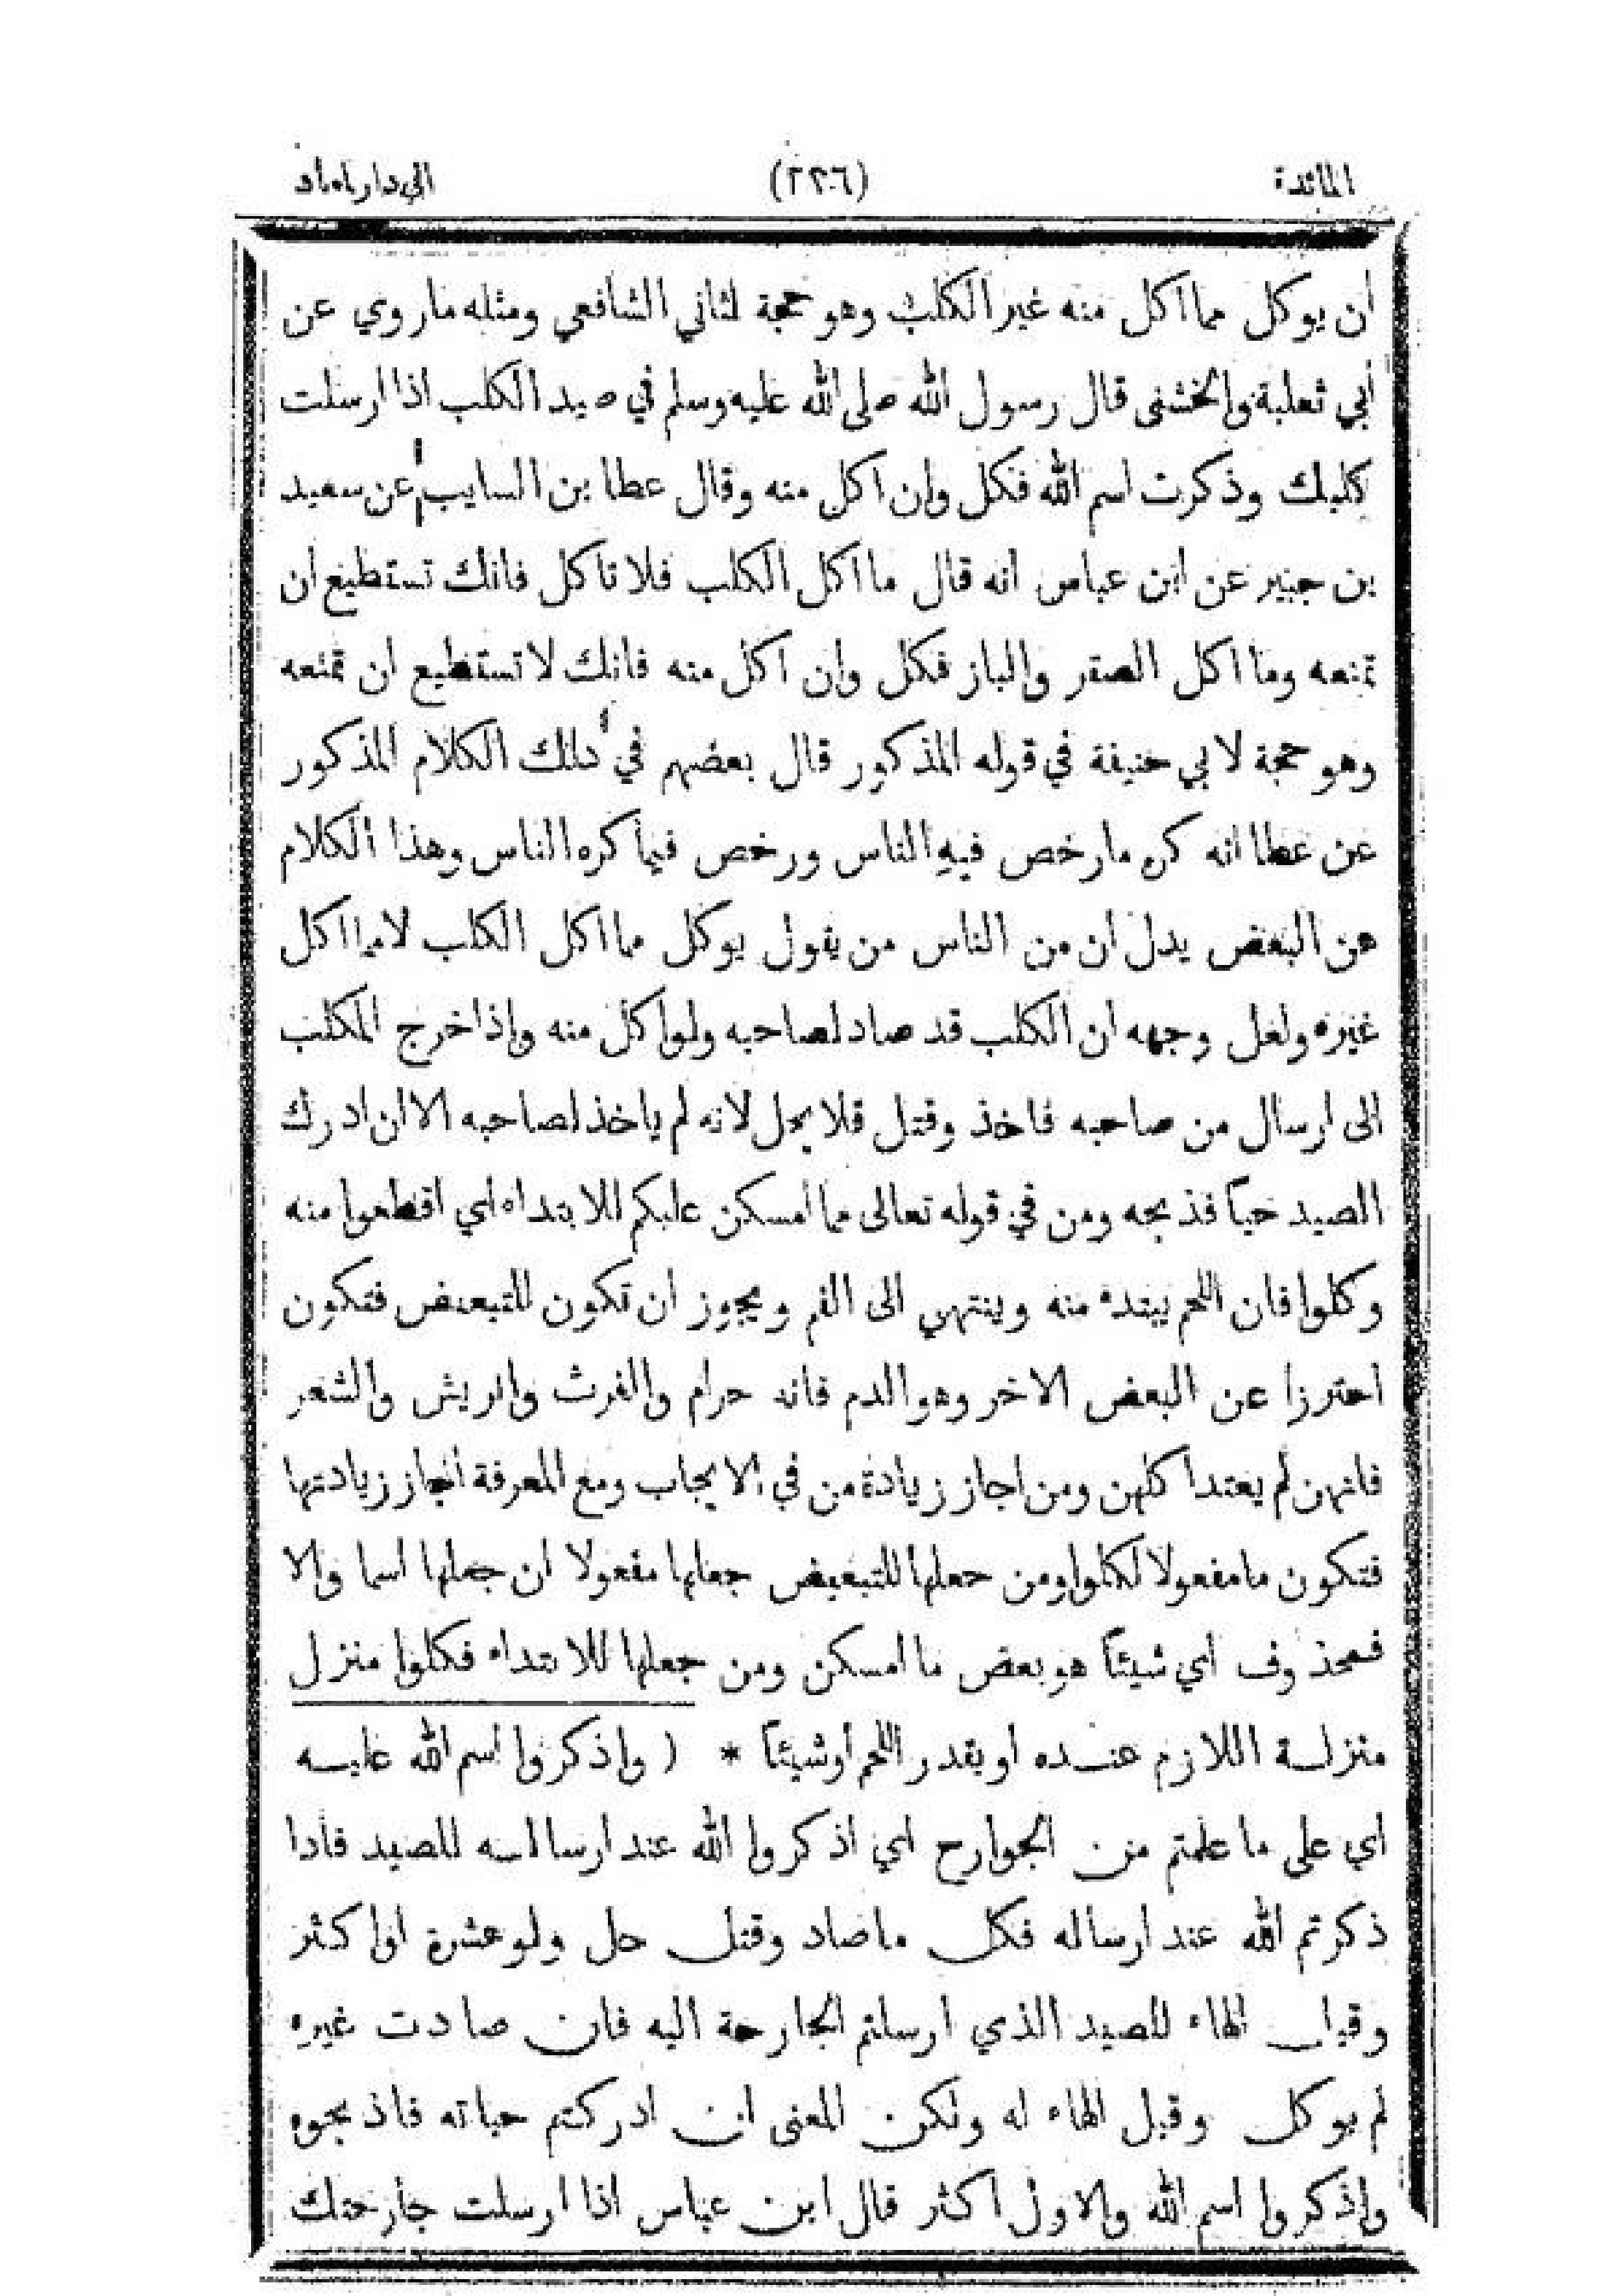 المائدة (٢٢٦) الي دار
أن يوكل مما اكل منه غير الكلب وهو حجة لثاني الشافعي ومثله ما روي عن
أبي ثعلبة والخشنى قال رسول الله صلى الله عليه وسلم في صيد الكلب اذا ارسلت
كلبك وذكرت اسم الله فكل وان اكل منه وقال عطا بن السايب عن سعيد
بن جبير عن ابن عباس انه قال ما اكل الكلب فلا تاكل فانك تستطيع ان
تمنعه وما اكل الصقر والباز فكل وان اكل منه فانك لا تستطيع ان تمنعه
وهو حجة لابي حنيفة في قوله المذكور قال بعضهم في ذلك الكلام المذكور
عن عطا انه كره ما رخص فيه الناس ورخص فيما كره الناس وهذا الكلام
عن البعض يدل ان من الناس من يقول يوكل مما اكل الكلب لا مما اكل
غيره ولعل وجهه ان الكلب قد صاد لصاحبه ولو اكل منه واذا خرج المكلب
الى ارسال من صاحبه فاخذ وقتل فلا يحل لانه لم ياخذ لصاحبه الا ان ادرك
الصيد حياً فذبحه ومن في قوله تعالى مما امسكن عليكم للابتداء اي اقطعوا منه
وكلوا فان اللحم يبتدء منه وينتهي الى الفم ويجوز ان تكون للتبعيض فتكون
احترزا عن البعض الاخر وهو الدم فانه حرام والفرث والريش والشعر
فانهن لم يعتد اكلهن ومن اجاز زيادة من في الايجاب ومع المعرفة اجاز زيادتها
فتكون ما مفعولا لكلوا ومن جعلها للتبعيض جعلها مفعولا ان جعلها اسما والا
فمحذوف اي شيئاً هو بعض ما امسكن ومن جعلها للابتداء فكلوا منزل
منزلة اللازم عنده او يقدر اللحم أو شيئاً * ( واذكروا اسم الله عليه
اي على ما علمتم من الجوارح اي اذكروا الله عند ارساله للصيد فاذا
ذكرتم الله عند ارساله فكل ما صاد وقتل حل ولو عشرة او اكثر
وقيل الهاء للصيد الذي ارسلتم الجارحة اليه فان صادت غيره
لم يوكل وقيل الهاء له ولكن المعنى ان ادركتم حياته فاذبحوه
واذكروا اسم الله والاول اكثر قال ابن عباس اذا ارسلت جارحتك